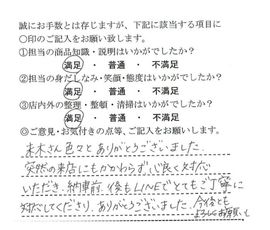 誠にお手数とは存じますが、下記に該当する項目に
〇印のご記入をお願い致します。
①担当の商品知識・説明はいかがでしたか?
満足 ・ 普通 ・ 不満足
②担当の身だしなみ・笑顔・態度はいかがでしたか?
満足 ・ 普通 ・ 不満足
③店内外の整理・整頓・清掃はいかがでしたか?
満足 ・ 普通 ・ 不満足
◎ご意見・お気付きの点等、ご記入をお願いします。
さん色々とありがとうございました。
突然の来店にもかかわらず心良く対応
いただき、納車前、後もLINEでとてもご丁寧に
対応してくださり、ありがとうございました。今後とも
よろしくお願いします